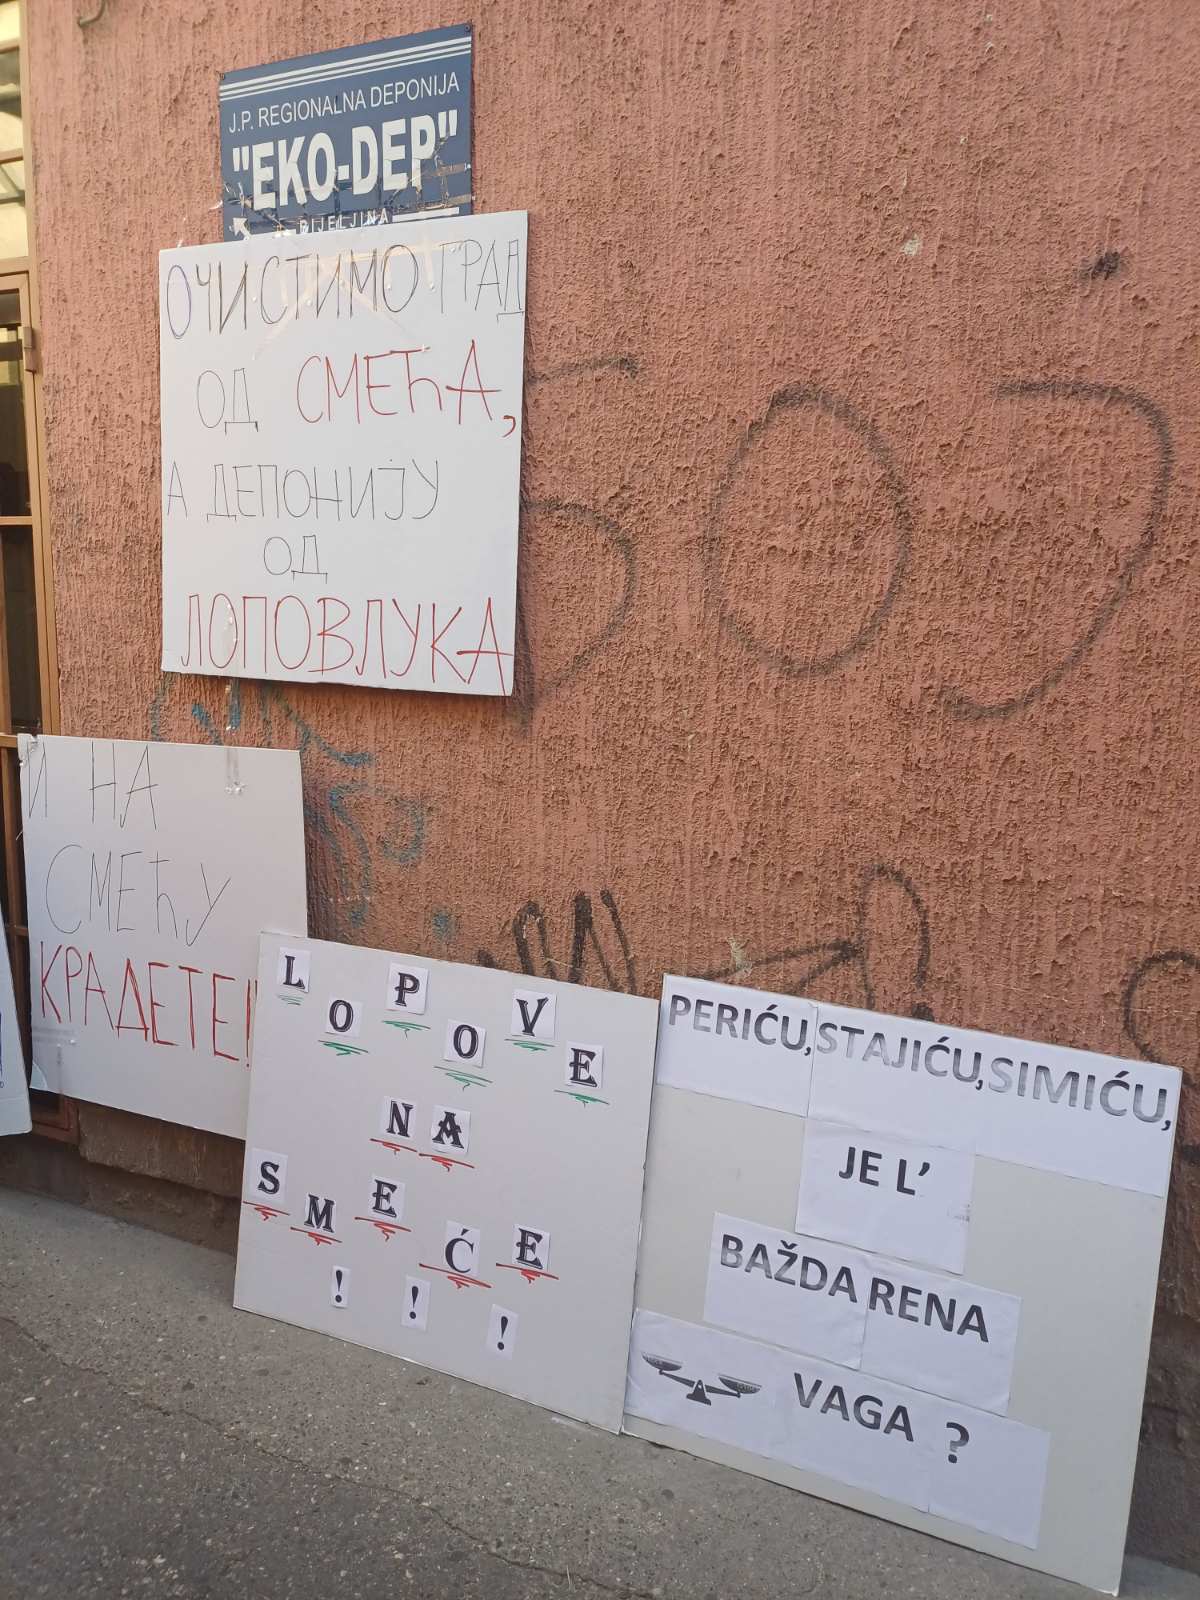 J.P. REGIONALNA DEPONIJA
"EKO-DEP"
BIJELJINA
ОЧИСТИМО ГРАД
ОД СМЕЋА,
А ДЕПОНИЈУ
ОД
ЛОПОВЛУКА
И НА
СМЕЋУ
КРАДЕТЕ!
LOPOVE
NA
SMEĆE
!!!
PERIĆU, STAJIĆU, SIMIĆU,
JE L'
BAŽDARENA
VAGA ?